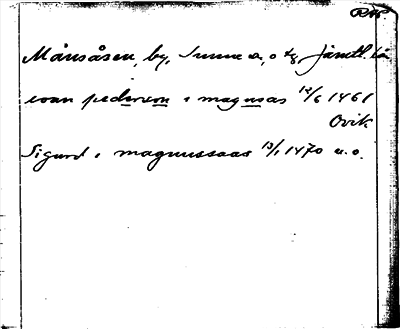 Månsåsen, by, Sunne s., o tg, Jämtl. lä
evan pederson i magusas 14/6 1461
Ovik
Sigurd i magnussaas 13/1 1470 u.o.